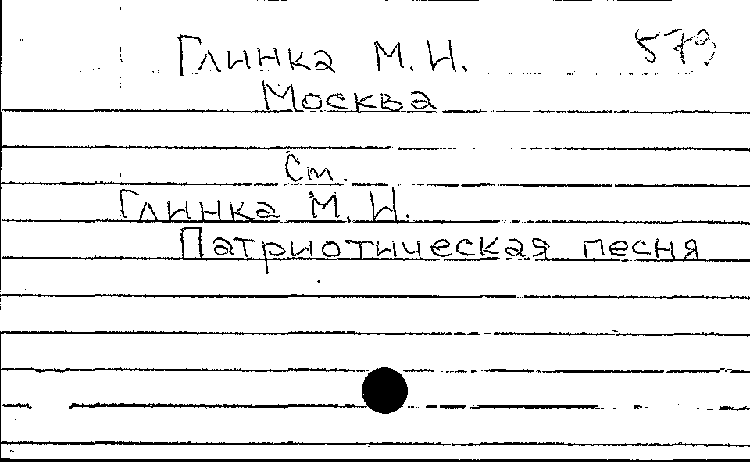 Глинка М. И. 579
Москва
Ст.
Глинка М. И.
Патриотическая песня